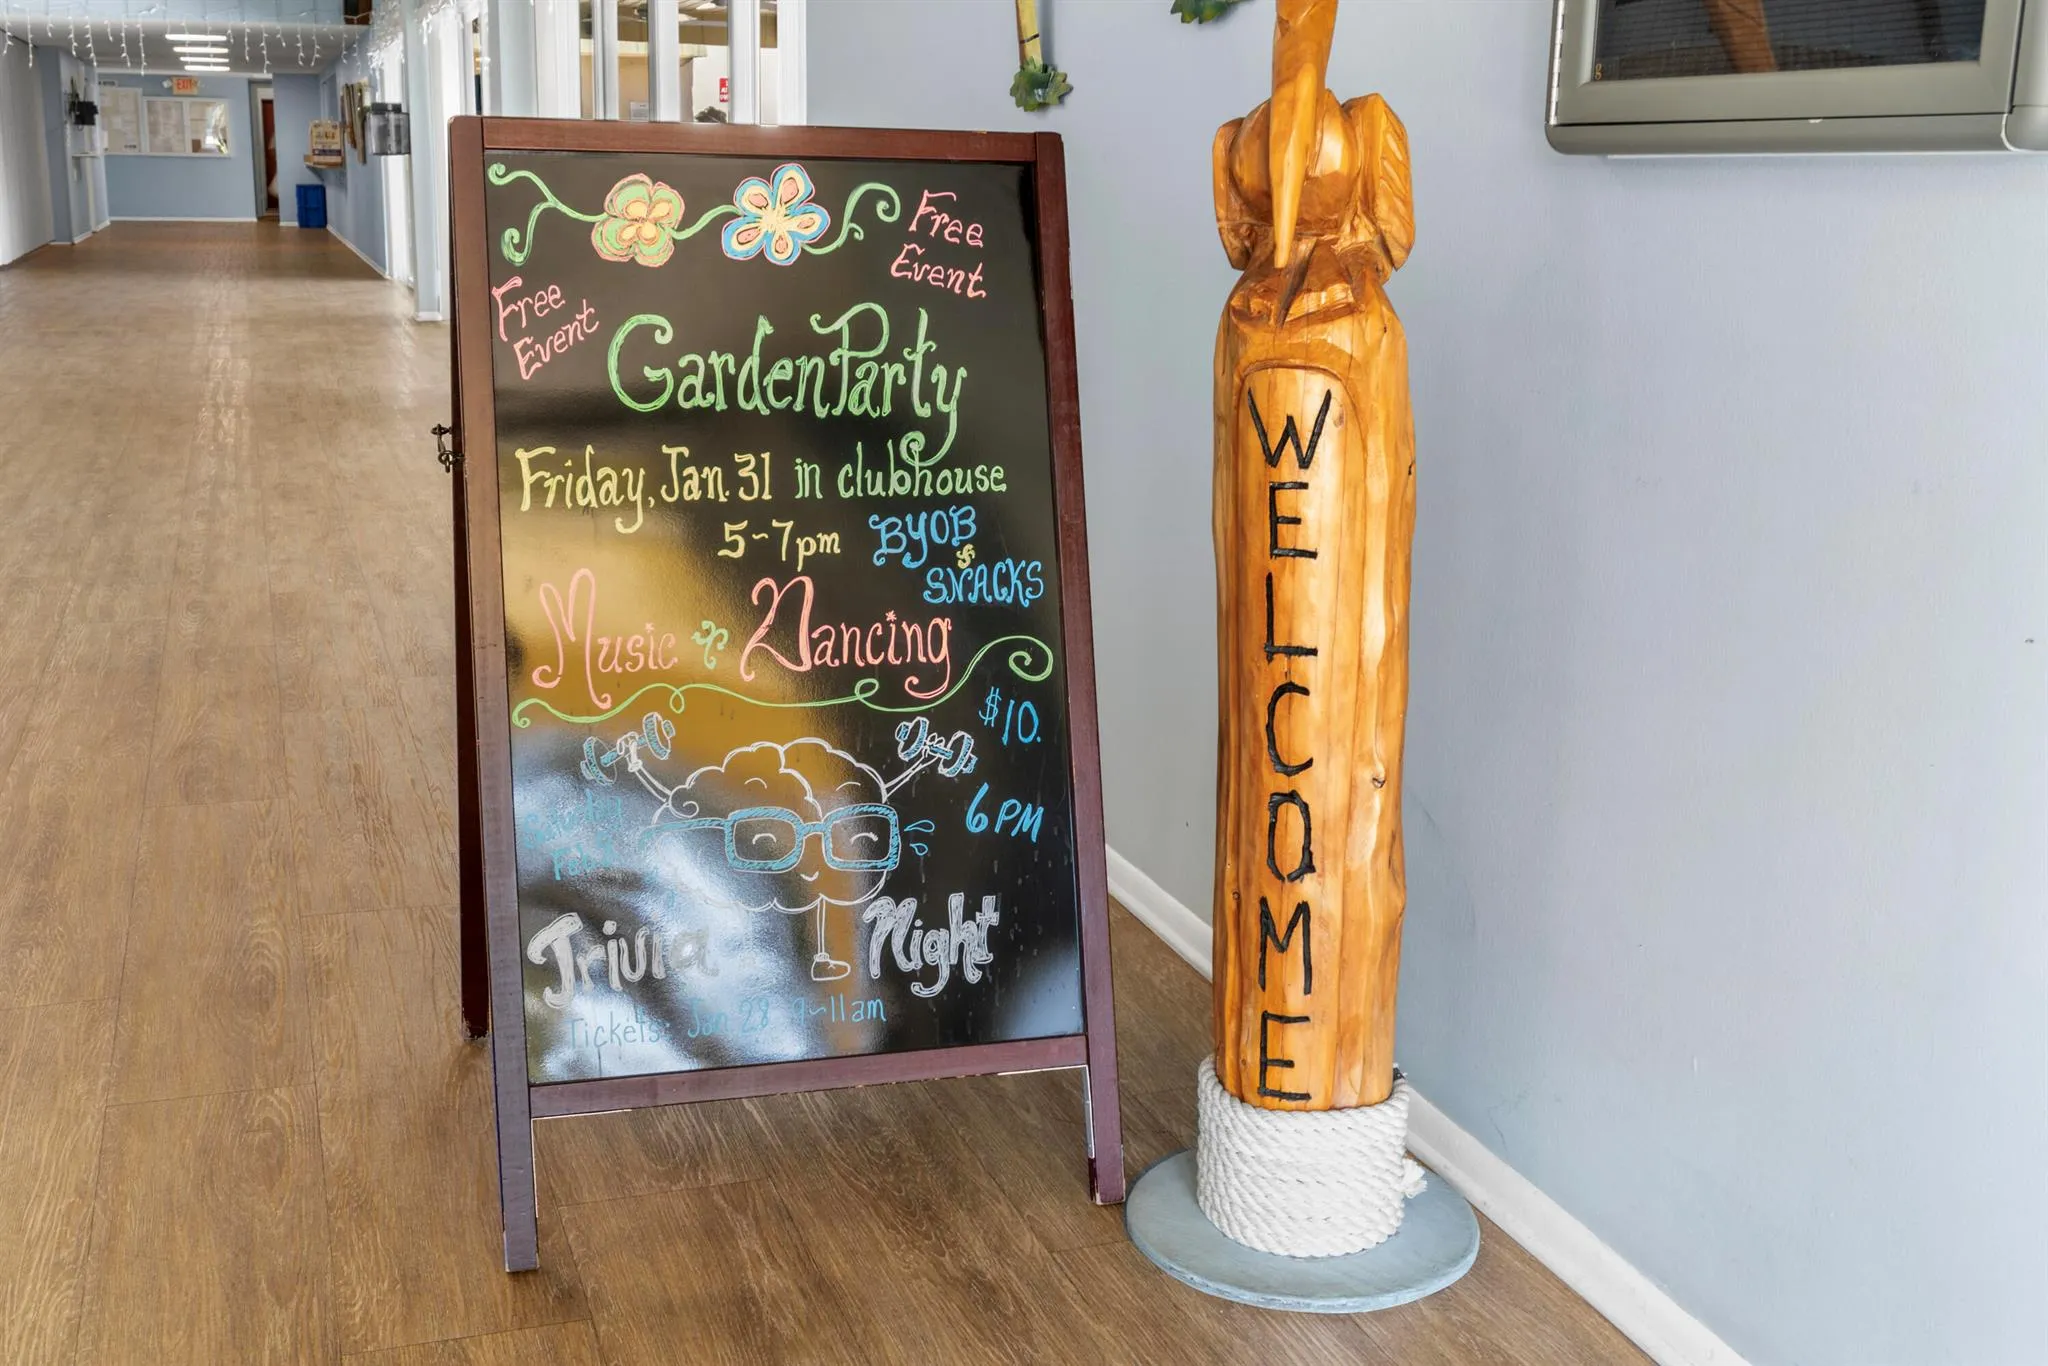 EXIT
Free
Event
Free
Event
Garden Party
Friday, Jan. 31 in clubhouse
5~7pm
BYOB
&
SNACKS
Music & Dancing
$10.
6 PM
Saturday
Trivia Night
Tickets: Jan 28 9~11am
WELCOME